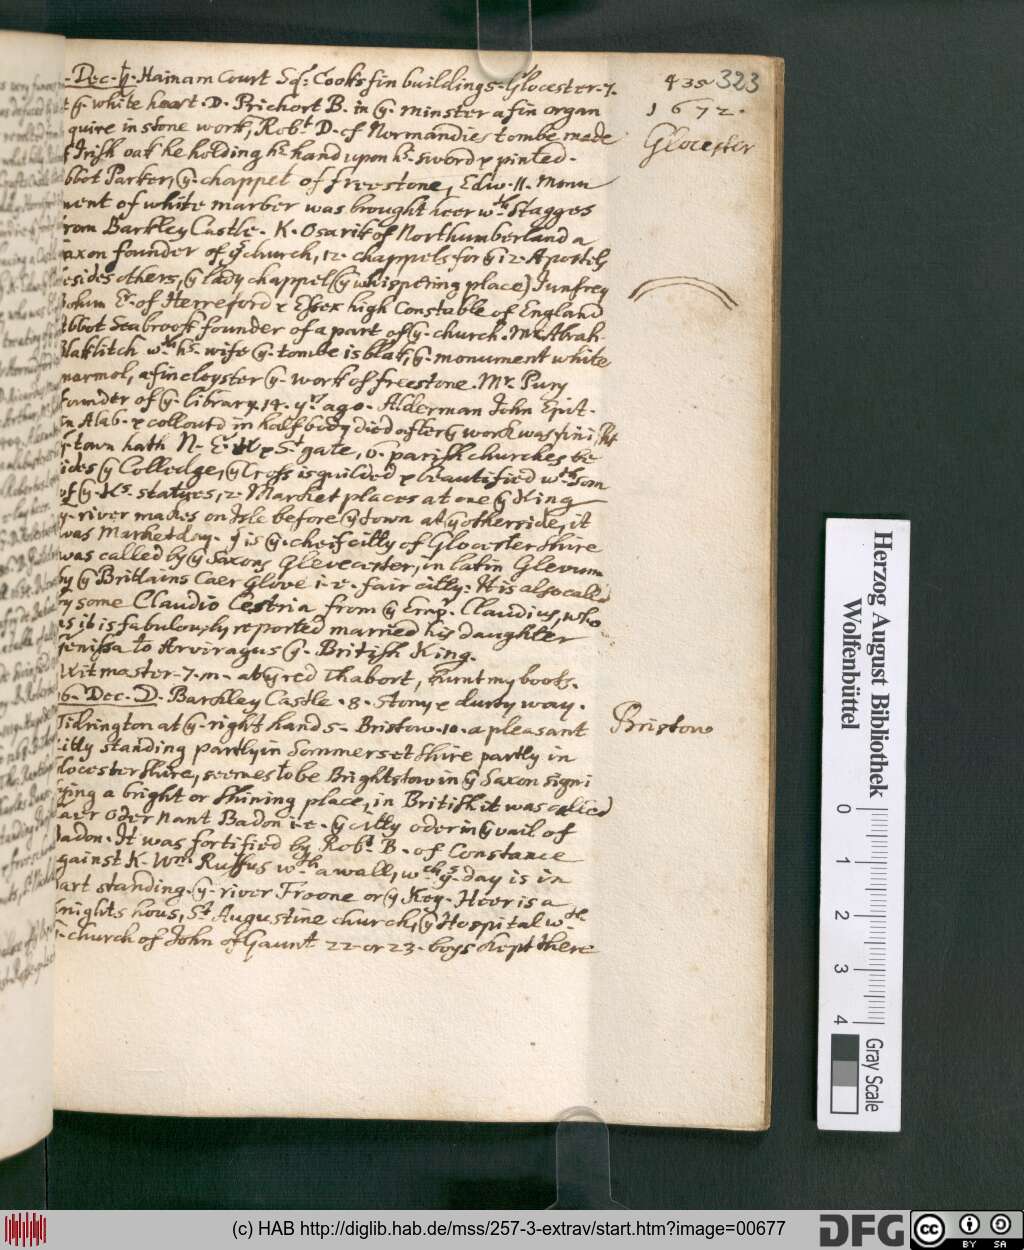 435 323
1672.
- Dec. ♄. Hainam Court Sr. Cooks fin buildings. Glocester. 7.
t ÿ. white heart. D. Prichort B. in ÿ. minster a fin organ
Glocester
quire in stone work, Robt D. of Normandies tombe made
f Irish oak he holding hs. hand upon hs. sword & pinted.
bbot Parker, ÿ. chappel of freestone, Edw. II. monu
ment of white marber was brought heer wth Stagges
rom Barkley Castle. K. Osarik of Northumberland a
axon founder of ÿs church, 12. chappels for ÿ 12. Apostels
esides others, ÿ lady chappel (ÿ whispering place) Junfrey
ohun E. of Herreford & Essex high Constable of England
bbot Seabrook founder of a part of ÿ. church. Mr. Abrah.
laklitch wth hs. wife ÿ. tombe is blak, ÿ. monument white
marmol, a fin cloyster ÿ. work of freestone. Mr. Pury
founder of ÿ. library. 14. yrs ago. Alderman John Epit.
n Alab. & collourd in half body died after ÿ work was finisht
ÿ. town hath N. E. W & S. gate, 6. parish churches be
ides ÿ Colledge, ÿ Cross is guilded & beautified wth som
of ÿ. Ks. statues, 2. Market places at one ÿ King
ÿ. river makes on Isle before ÿ town at ÿ otherside, it
was Marketday. ÿ is ÿ. cheif citty of Glocestershire
was called by ÿ Saxons Glevecester, in latin Glevum
by ÿ Brittains Caer Glove i. e. fair citty: It is also called
y some Claudio Cestria from ÿ Emp. Claudius, who
as it is fabulously reported married his daughter
Genissa to Arviragus ÿ. British King.
Witmaster. 7. m. at ÿ red Thabort, burnt my boots.
6. Dec. D. Barkley Castle. 8. stony & durty way.
Tidrington at ÿ. right hand 5. Bristow. 10. a pleasant
Bristow
itty standing partly in Sommersetshire partly in
locestershire, seemes to be Brightstow in ÿ Saxon signi
ying a bright or shining place, in British it was called
aer Oder nant Badon i. e. ÿ citty oder in ÿ vail of
Badon. It was fortified by Robt B. of Constance
gainst K. Wm. Ruffus wth a wall, wch ÿs. day is in
art standing. ÿ. river Froone or ÿ Key. Heer is a
nights hous, St Augustine church, ÿ Hospital wth
ÿ. church of John of Gaunt 22. or 23. boys kept there
Herzog August Bibliothek
Wolfenbüttel
0 1 2 3 4
Gray Scale
(c) HAB http://diglib.hab.de/mss/257-3-extrav/start.htm?image=00677
DFG
cc BY SA